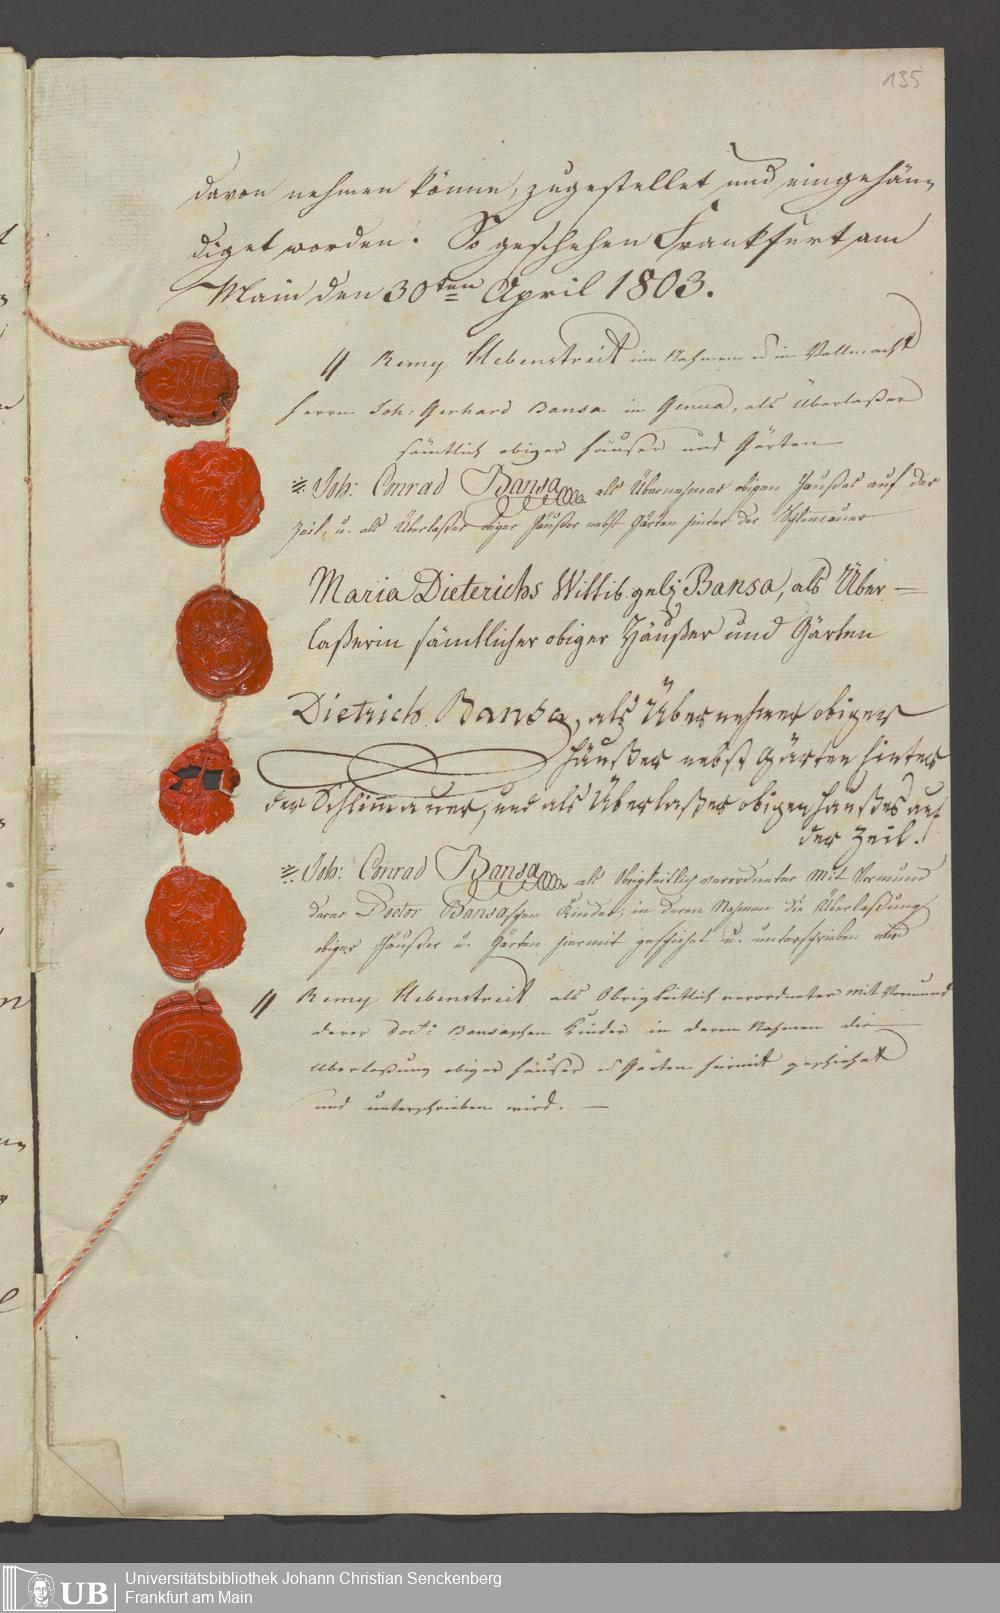 135
davon nehmen könne, zugestellet und eingehän-
diget worden. So geschehen Frankfurt am
Main den 30ten April 1803.
Remy Hebenstreit im Nahmen u in Vollmacht
Herrn Joh: Gerhard Bansa in Genua, als Überlaßer
sämtlich obiger Häuser und Gärten
Joh: Conrad Bansa als Übernehmer obigen Haußes auf der
Zeil, u. als Überlaßer obiger Häußer nebst Gärten hinter der Schlimmauer
Maria Dieterichs Wittib. geb: Bansa, als Über-
laßerin sämtlicher obiger Häußer und Gärten
Dietrich Bansa, als Übernehmer obiger
Häußer nebst Gärten hinter
der Schlim̄mauer, und als Überlaßer obigen Haußes auf
der Zeil.
Joh: Conrad Bansa als Obrigkeitlich verordneter Mit Vormund
derer Doctor Bansaschen Kinder, in deren Nahmen die Überlaßung
obiger Häußer u. Gärten hiermit geschiehet u. unterschrieben wird
Remy Hebenstreit als Obrigkeitlich verordneter Mit Vormund
derer Doct: Bansaschen Kinder in deren Nahmen die
Überlaßung obiger Häuser u Gärten hiermit geschiehet
und unterschrieben wird.
UB
Universitätsbibliothek Johann Christian Senckenberg
Frankfurt am Main